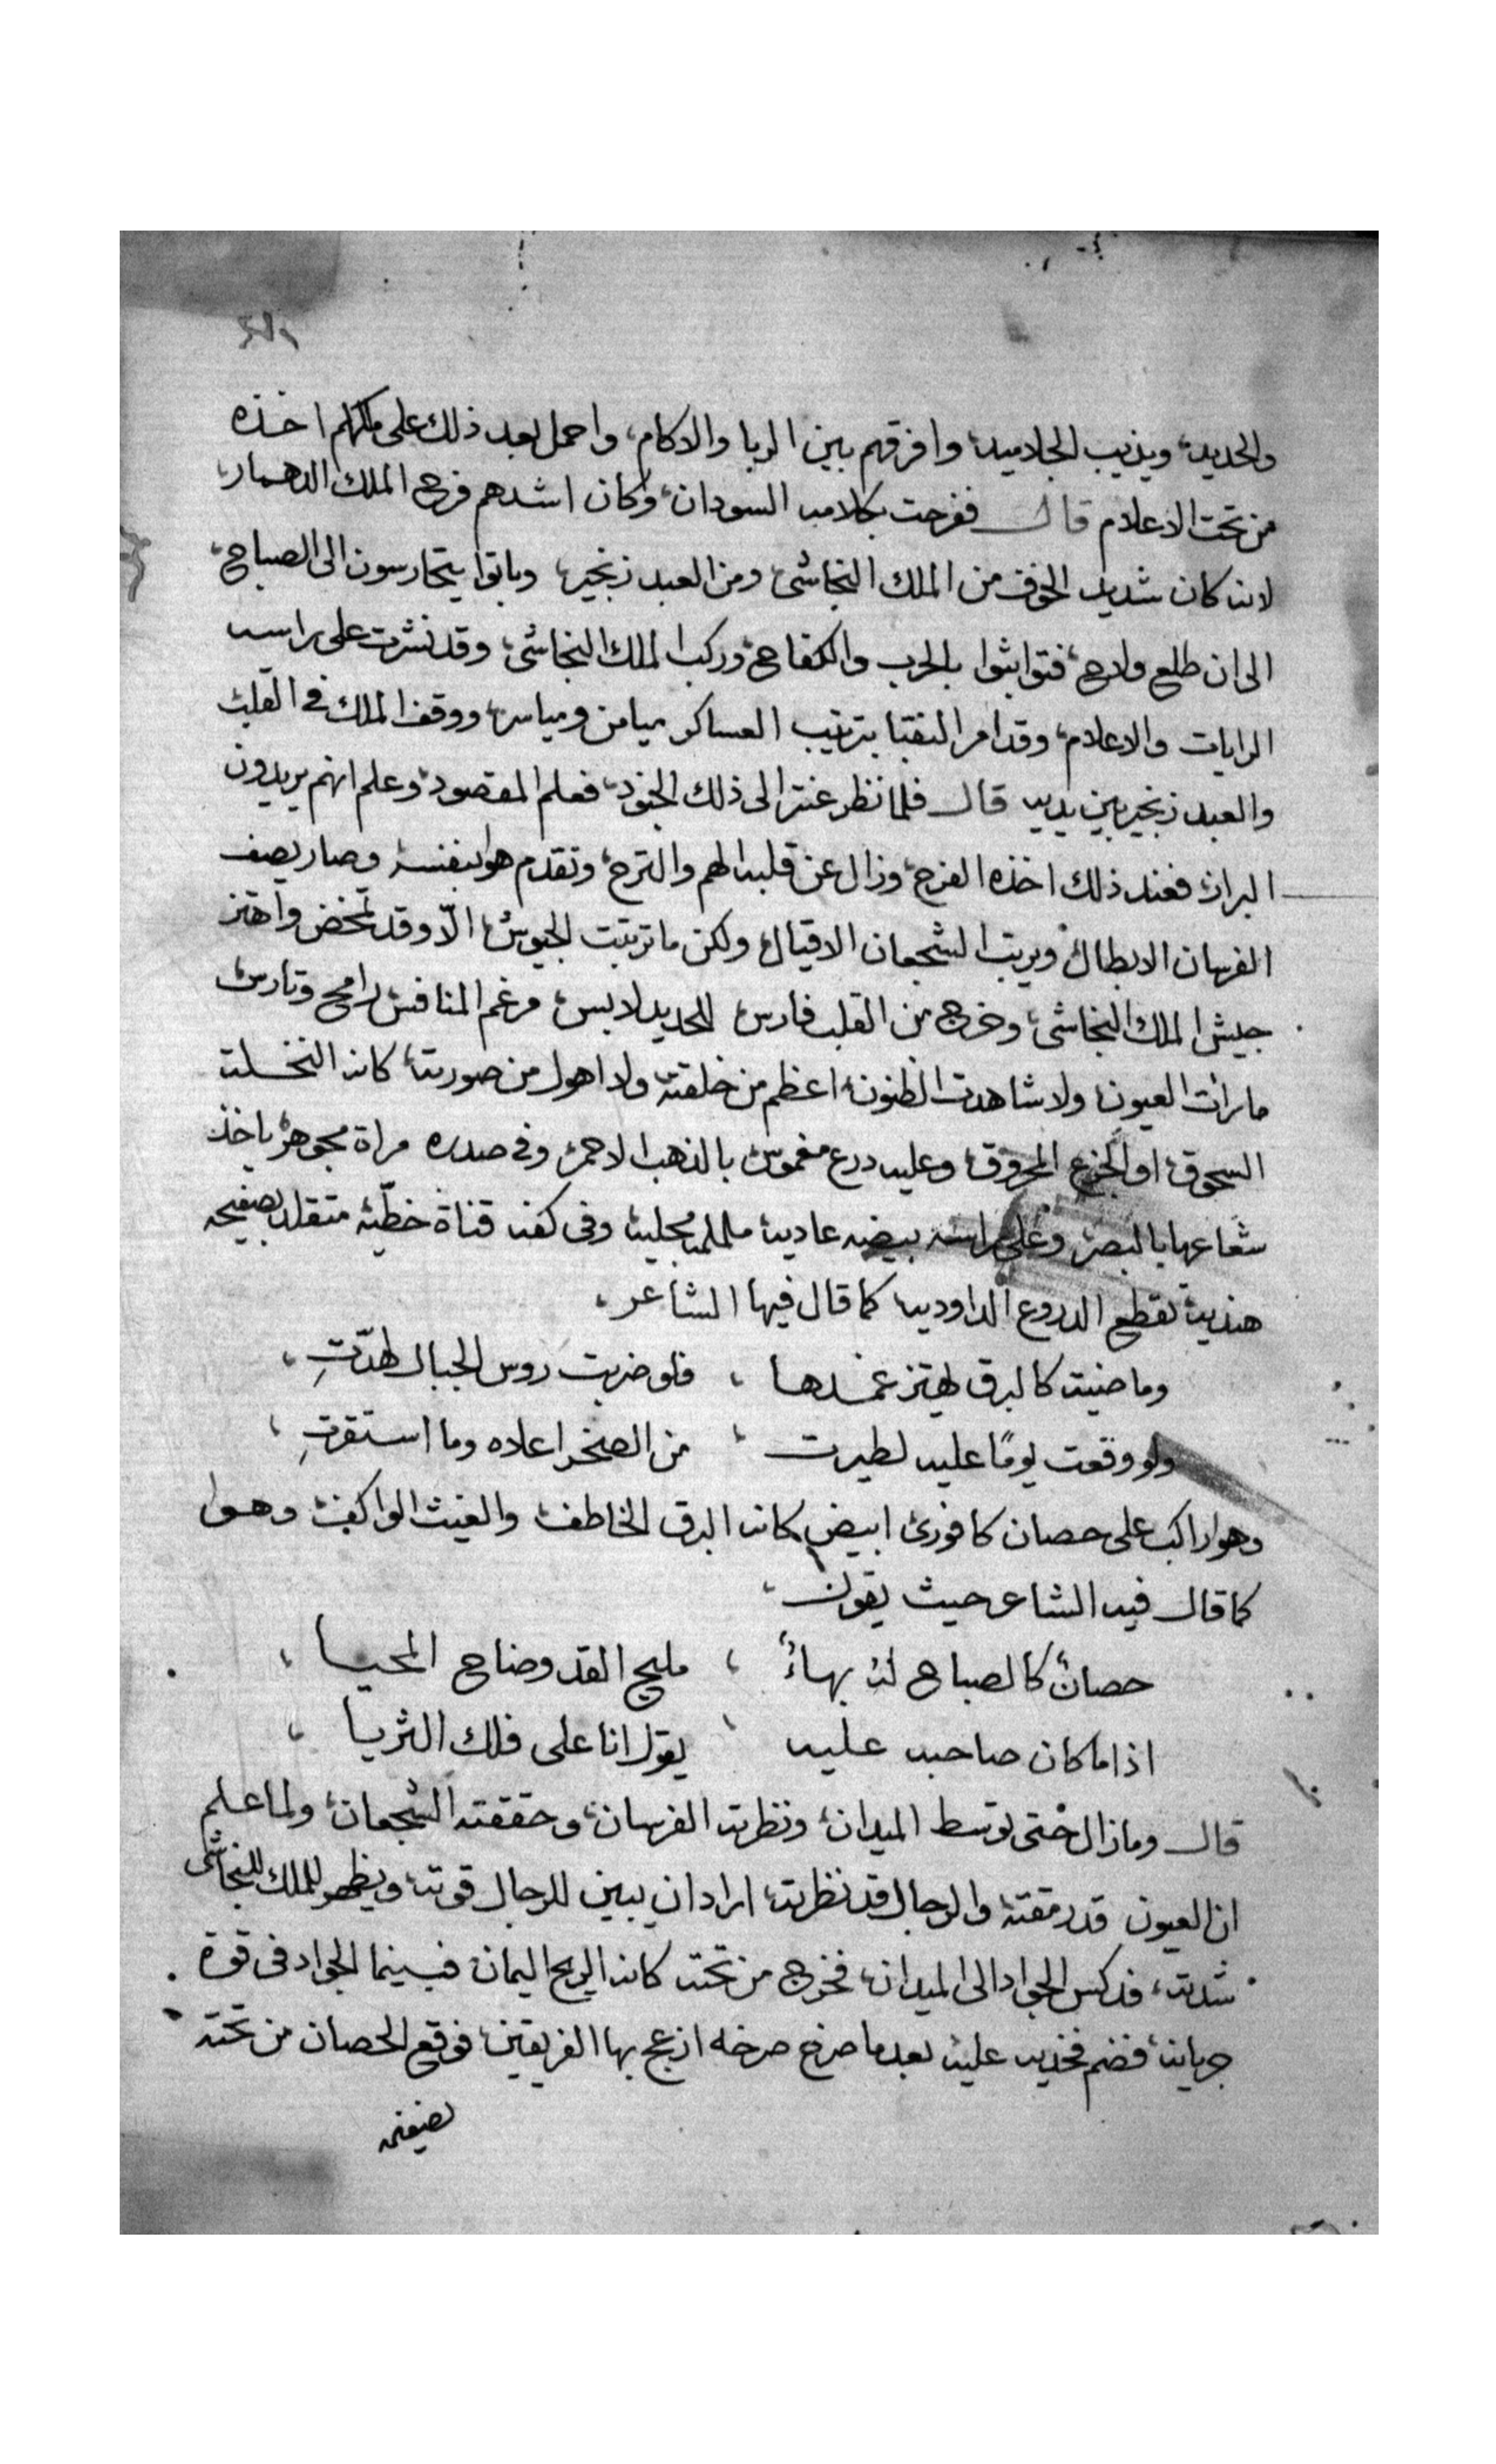 والحديد، ويذيب الجلاميد، وافرقهم بين الربا والاكام، واحمل بعد ذلك على ملكهم اخذه
من تحت الاعلام قال ففرحت بكلامه السودان، وكان اشدهم فرح الملك الدهمار،
لانه كان شديد الخوف من الملك النجاشى، ومن العبد زنجير، وباتوا يتحارسون الى الصباح،
الى ان طلع ولاح، فتواثبوا بالحرب والكفاح، وركب الملك النجاشى، وقد نشرت على راسه
الرايات والاعلام، وقد امر النقبا بترتيب العساكر ميامن ومياسر، ووقف الملك فى القلب
والعبد زنجير بين يديه قال فلما نظر عنتر الى ذلك الجنود، فعلم المقصود، وعلم انهم يريدون
البراز، فعند ذلك اخذه الفرح، وزال عن قلبه الهم والترح، وتقدم هو بنفسه وصار يصف
الفرسان الابطال، ويرتب الشجعان الاقيال، ولكن ما ترتبت الجيوش، الّا وقد تمخض واهتز
جيش الملك النجاشى، وخرج من القلب فارس، للحديد لابس، مرغم المنافس، رامح وتارس
ما رات العيون، ولا شاهدت الظنون، اعظم من خلقته، ولا اهول من صورته، كانه النخلة
السحوق، او الجزع المحروق، وعليه درع مغموس بالذهب الاحمر، وفى صدره مراة مجوهر، ياخذ
شعاعها بالبصر، وعلى راسه بيضه عاديه، ململمه مجليه، وفى كفه قناة خطّيه، متقلد بصفيحه
هنديه، تقطع الدروع الداوديه كما قال فيها الشاعر،
وماضية كالبرق يهتز غمدها ، فلو ضربت روس الجبال لهدّتِ ،
ولو وقعت يومًا عليه لطيرت ، من الصخر اعلاه وما استقرتِ ،
وهوا راكب على حصان كافورى، ابيض كانه البرق الخاطف، والغيث الواكف، وهوا
كما قال فيه الشاعر حيث يقول ،
حصانٌ كالصباح له بهاءٌ ، مليح القد وضاح المحيا ،
اذا ما كان صاحبه عليه ، يقول انا على فلك الثريا ،
قال ومازال حتى توسط الميدان، ونظرته الفرسان، وحققته الشجعان، ولما علم
ان العيون قد رمقته، والرجال قد نظرته، اراد ان يبين للرجال قوته، ويظهر للملك النجاشى
شدته، فدكس الجواد الى الميدان، فخرج من تحته كانه الريح اليمان، فبينما الجواد فى قوة
جريانه، فضم فخذيه عليه، بعدما صرخ صرخه ازعج بها الفريقين، فوقع الحصان من تحته